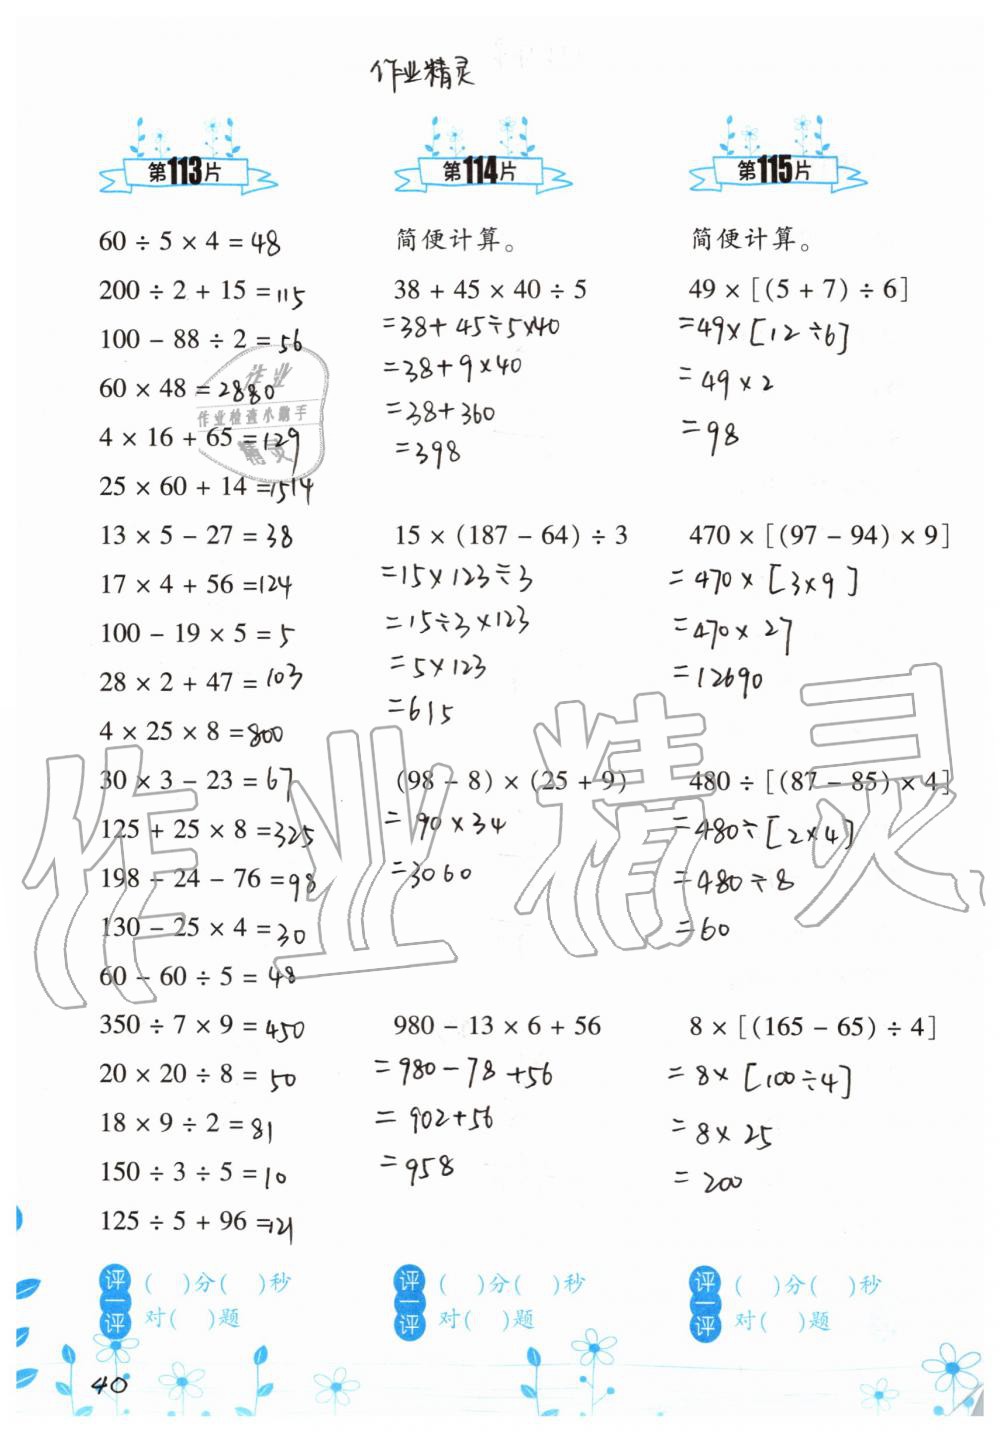 作业精灵
第113片
60 ÷ 5 × 4 = 48
200 ÷ 2 + 15 = 115
100 - 88 ÷ 2 = 56
60 × 48 = 2880
4 × 16 + 65 = 129
25 × 60 + 14 = 1514
13 × 5 - 27 = 38
17 × 4 + 56 = 124
100 - 19 × 5 = 5
28 × 2 + 47 = 103
4 × 25 × 8 = 800
30 × 3 - 23 = 67
125 + 25 × 8 = 325
198 - 24 - 76 = 98
130 - 25 × 4 = 30
60 - 60 ÷ 5 = 48
350 ÷ 7 × 9 = 450
20 × 20 ÷ 8 = 50
18 × 9 ÷ 2 = 81
150 ÷ 3 ÷ 5 = 10
125 ÷ 5 + 96 = 121
评一评
( )分( )秒
对( )题
第114片
简便计算。
38 + 45 × 40 ÷ 5
= 38 + 45 ÷ 5 × 40
= 38 + 9 × 40
= 38 + 360
= 398
15 × (187 - 64) ÷ 3
= 15 × 123 ÷ 3
= 15 ÷ 3 × 123
= 5 × 123
= 615
(98 - 8) × (25 + 9)
= 90 × 34
= 3060
980 - 13 × 6 + 56
= 980 - 78 + 56
= 902 + 56
= 958
评一评
( )分( )秒
对( )题
第115片
简便计算。
49 × [(5 + 7) ÷ 6]
= 49 × [12 ÷ 6]
= 49 × 2
= 98
470 × [(97 - 94) × 9]
= 470 × [3 × 9]
= 470 × 27
= 12690
480 ÷ [(87 - 85) × 4]
= 480 ÷ [2 × 4]
= 480 ÷ 8
= 60
8 × [(165 - 65) ÷ 4]
= 8 × [100 ÷ 4]
= 8 × 25
= 200
评一评
( )分( )秒
对( )题
作业
作业检查小助手
精灵
作业精灵
40